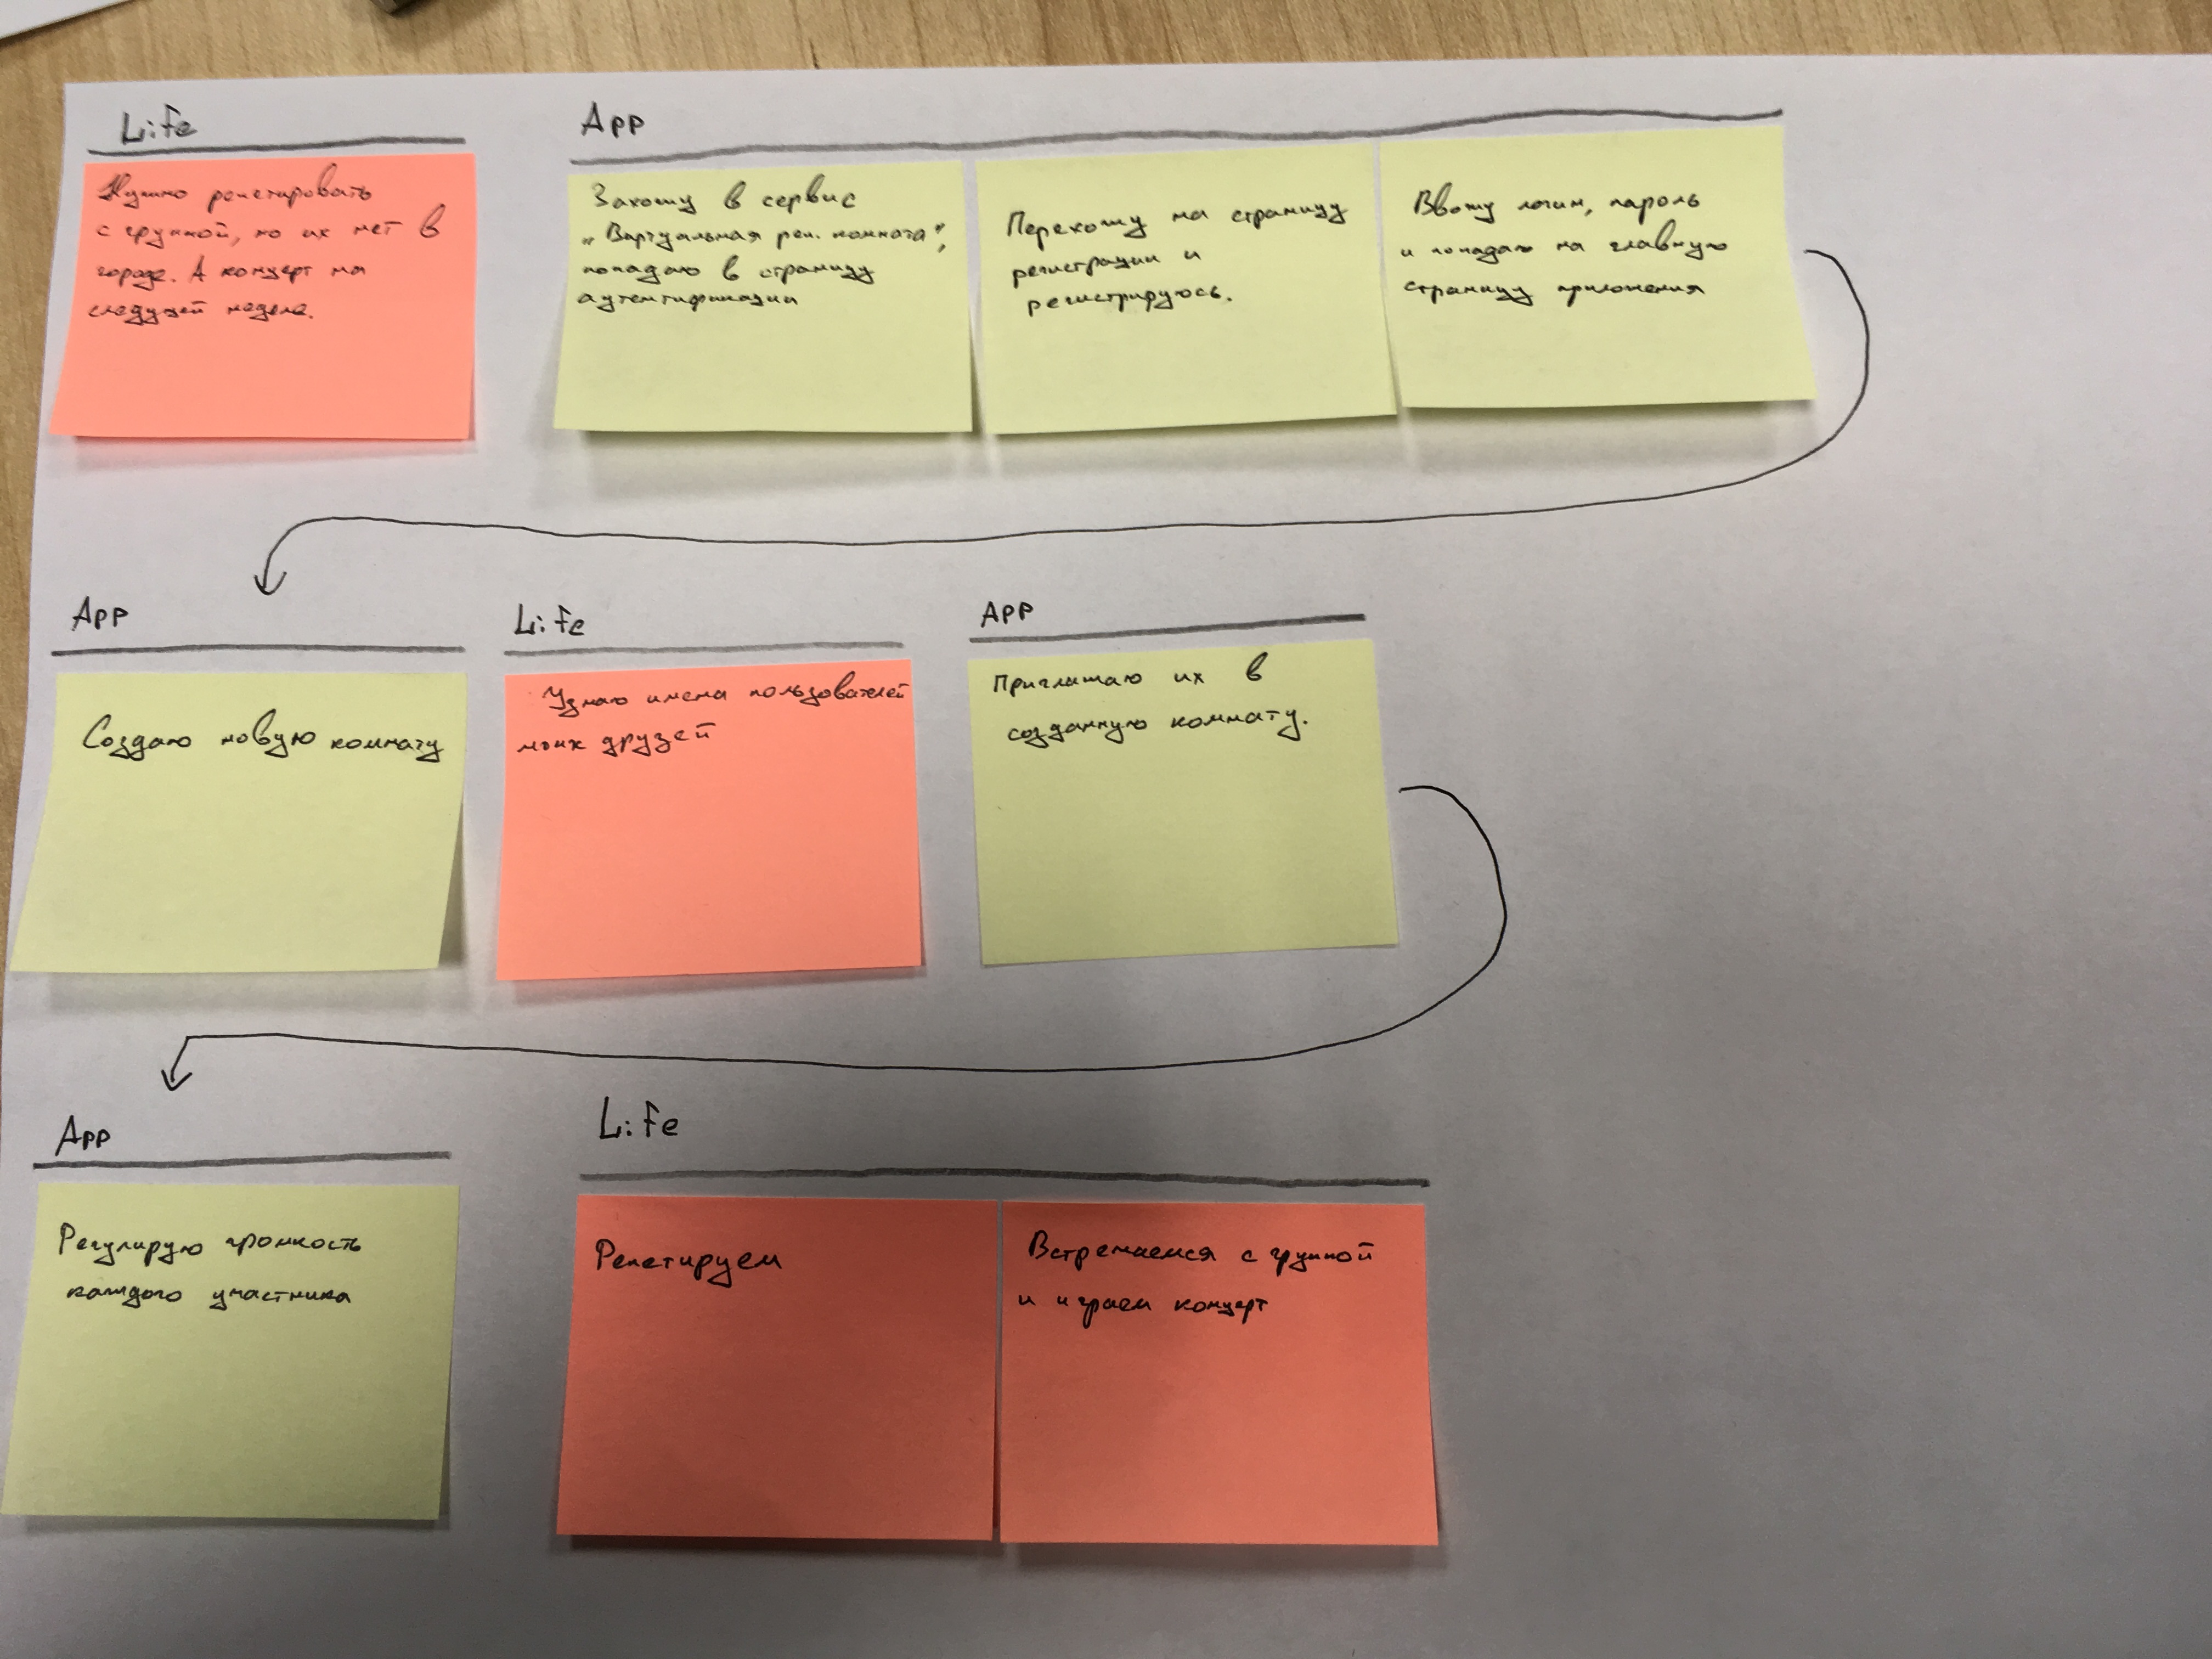 Life
Нужно репетировать
с группой, но их нет в
городе. А концерт на
следущей неделе.
App
Захожу в сервис
„Виртуальная реп. комната",
попадаю в страницу
аутентификации
Перехожу на страницу
регистрации и
регистрируюсь.
Ввожу логин, пароль
и попадаю на главную
страницу приложения
App
Создаю новую комнату
Life
Узнаю имена пользователей
моих друзей
App
Приглашаю их в
созданную комнату.
App
Регулирую громкость
каждого участника
Life
Репетируем
Встречаемся с группой
и играем концерт